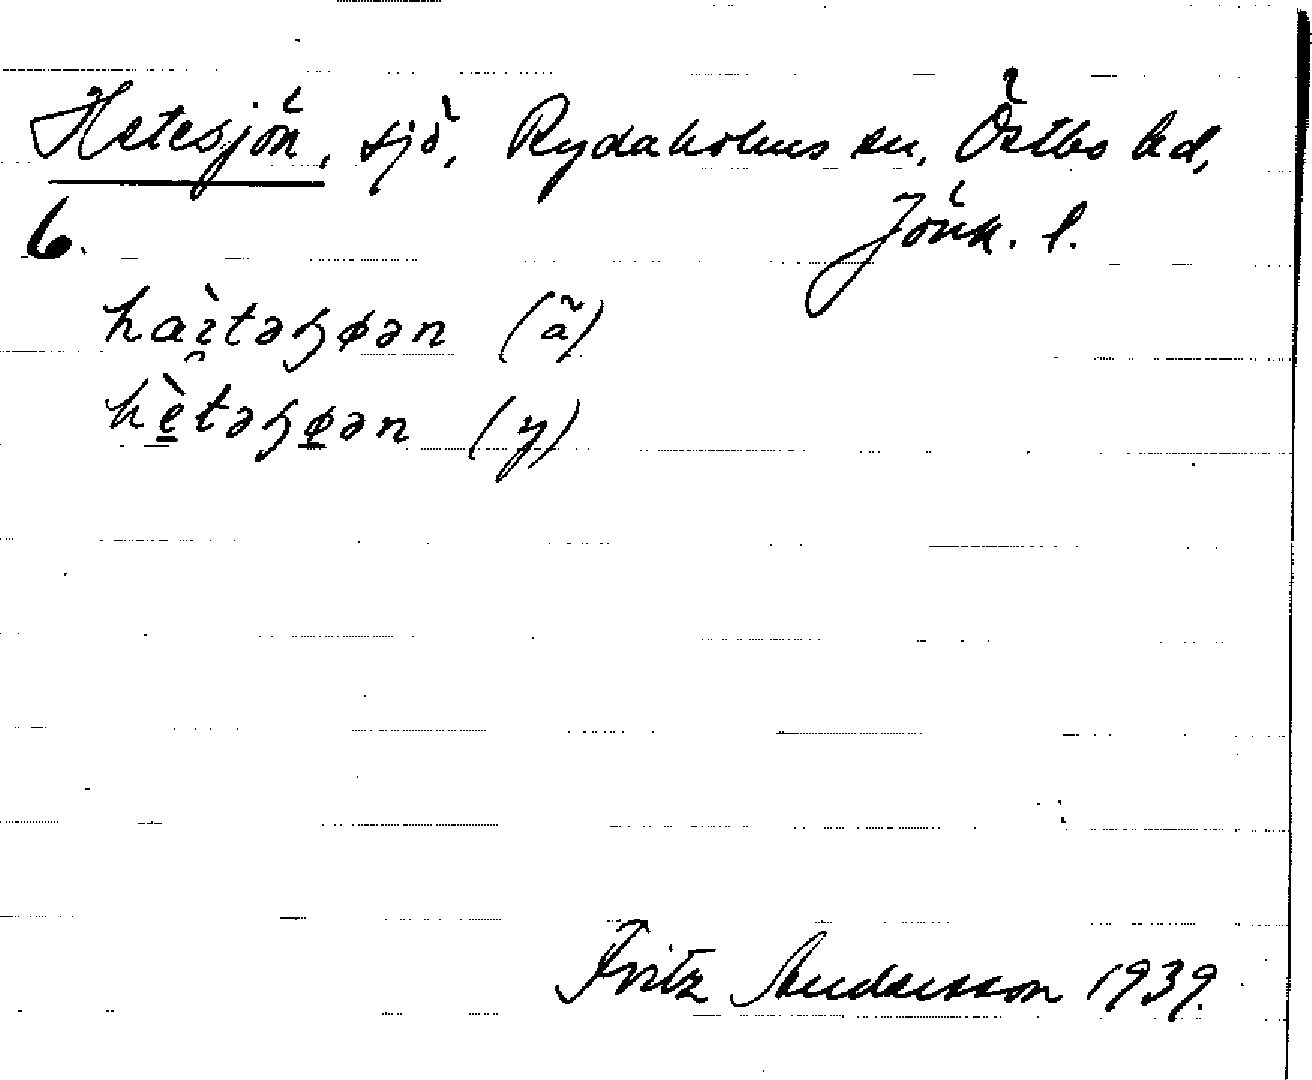 Hetesjön, sjö, Rydaholms sn, Östbo hd,
6. Jönk. l.
haì̯təɧøən (ã)
hè̲təɧø̲ən (y)
Fritz Andersson 1939.